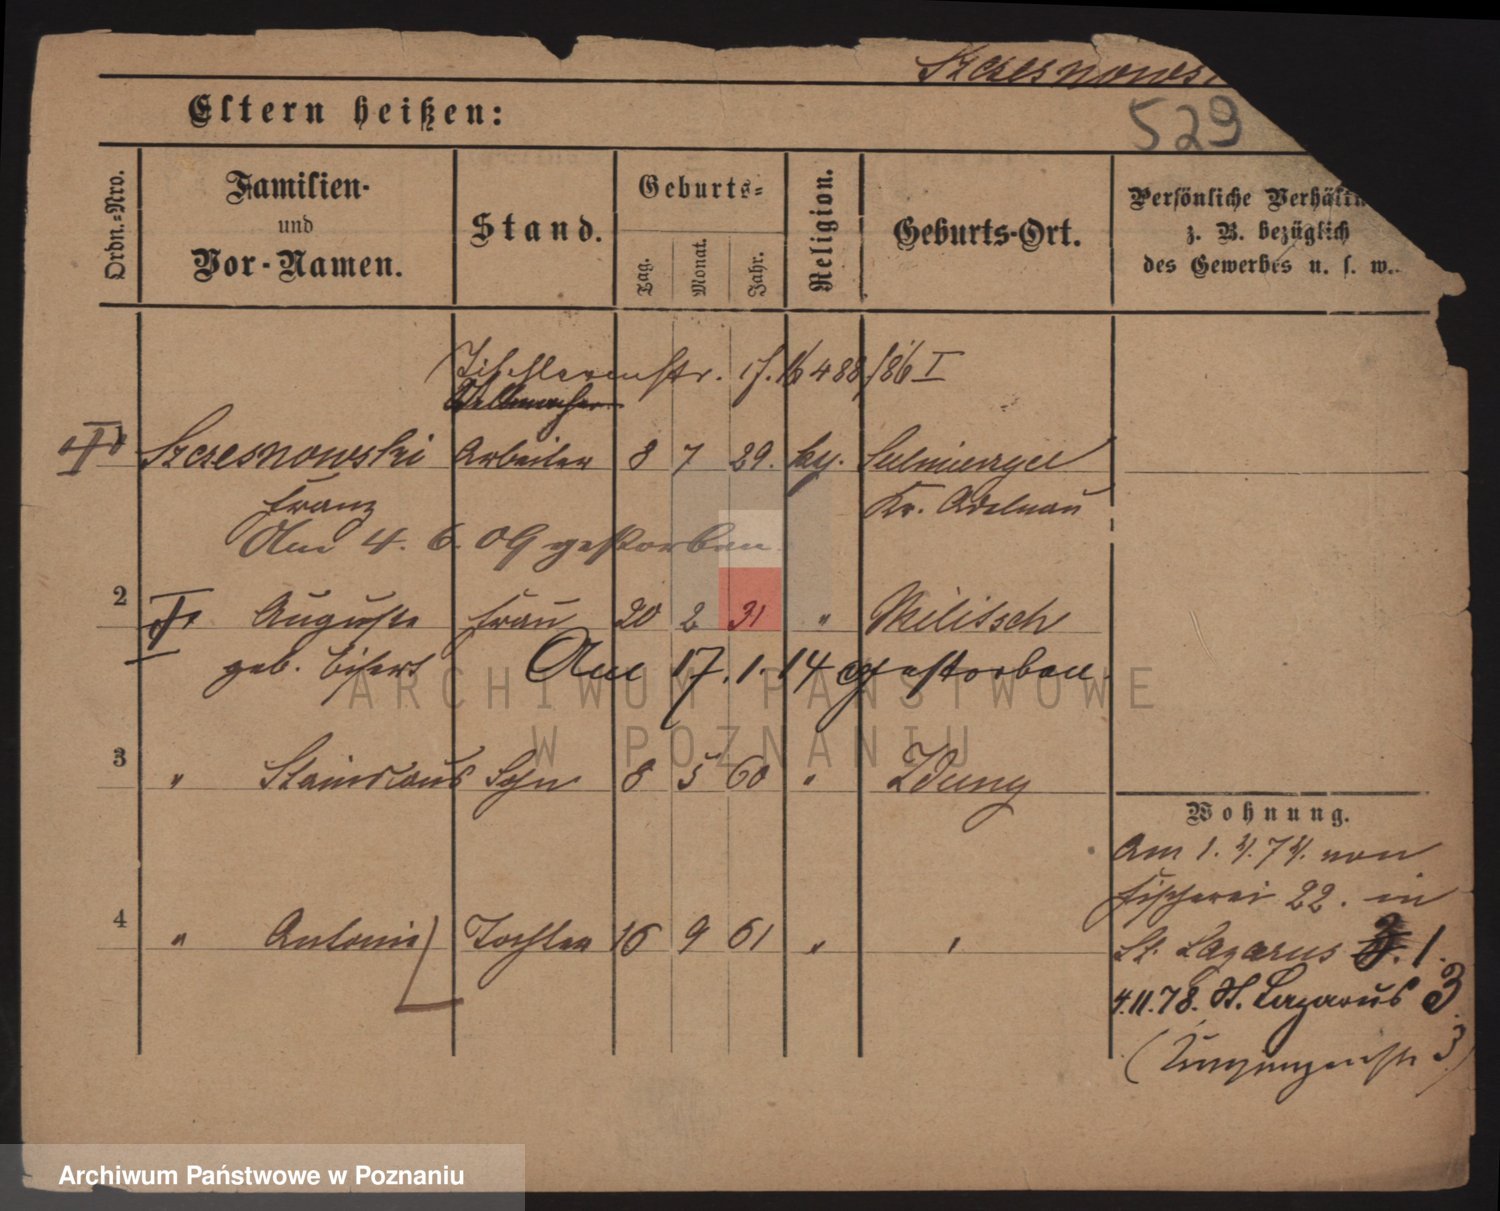 Szczesnows
529
Eltern heißen:
Ordn.=Nro.
Familien-
und
Vor-Namen.
Stand.
Geburts=
Tag.
Monat.
Jahr.
Religion.
Geburts-Ort.
Persönliche Verhältn
z. B. bezüglich
des Gewerbes u. s. w.
17. 16 488/86 I
Szczesnowski Arbeiter 8 7 29. kg. Sulmierzyce
Franz Kr. Adelnau
Am 4. 6. 09 gestorben.
2 Auguste Frau 20 2 31 " Militsch
geb. Am 17. 1. 14 gestorben.
3 " Stanislaus Sohn 8 5 60 " Zduny
4 " Antonie Tochter 16 9 61 " "
Wohnung.
Am 1. 4. 74. von
Fischerei 22. in
St. Lazarus 1.
4.11.78. St. Lazarus 3
ARCHIWUM PAŃSTWOWE
W POZNANIU
Archiwum Państwowe w Poznaniu